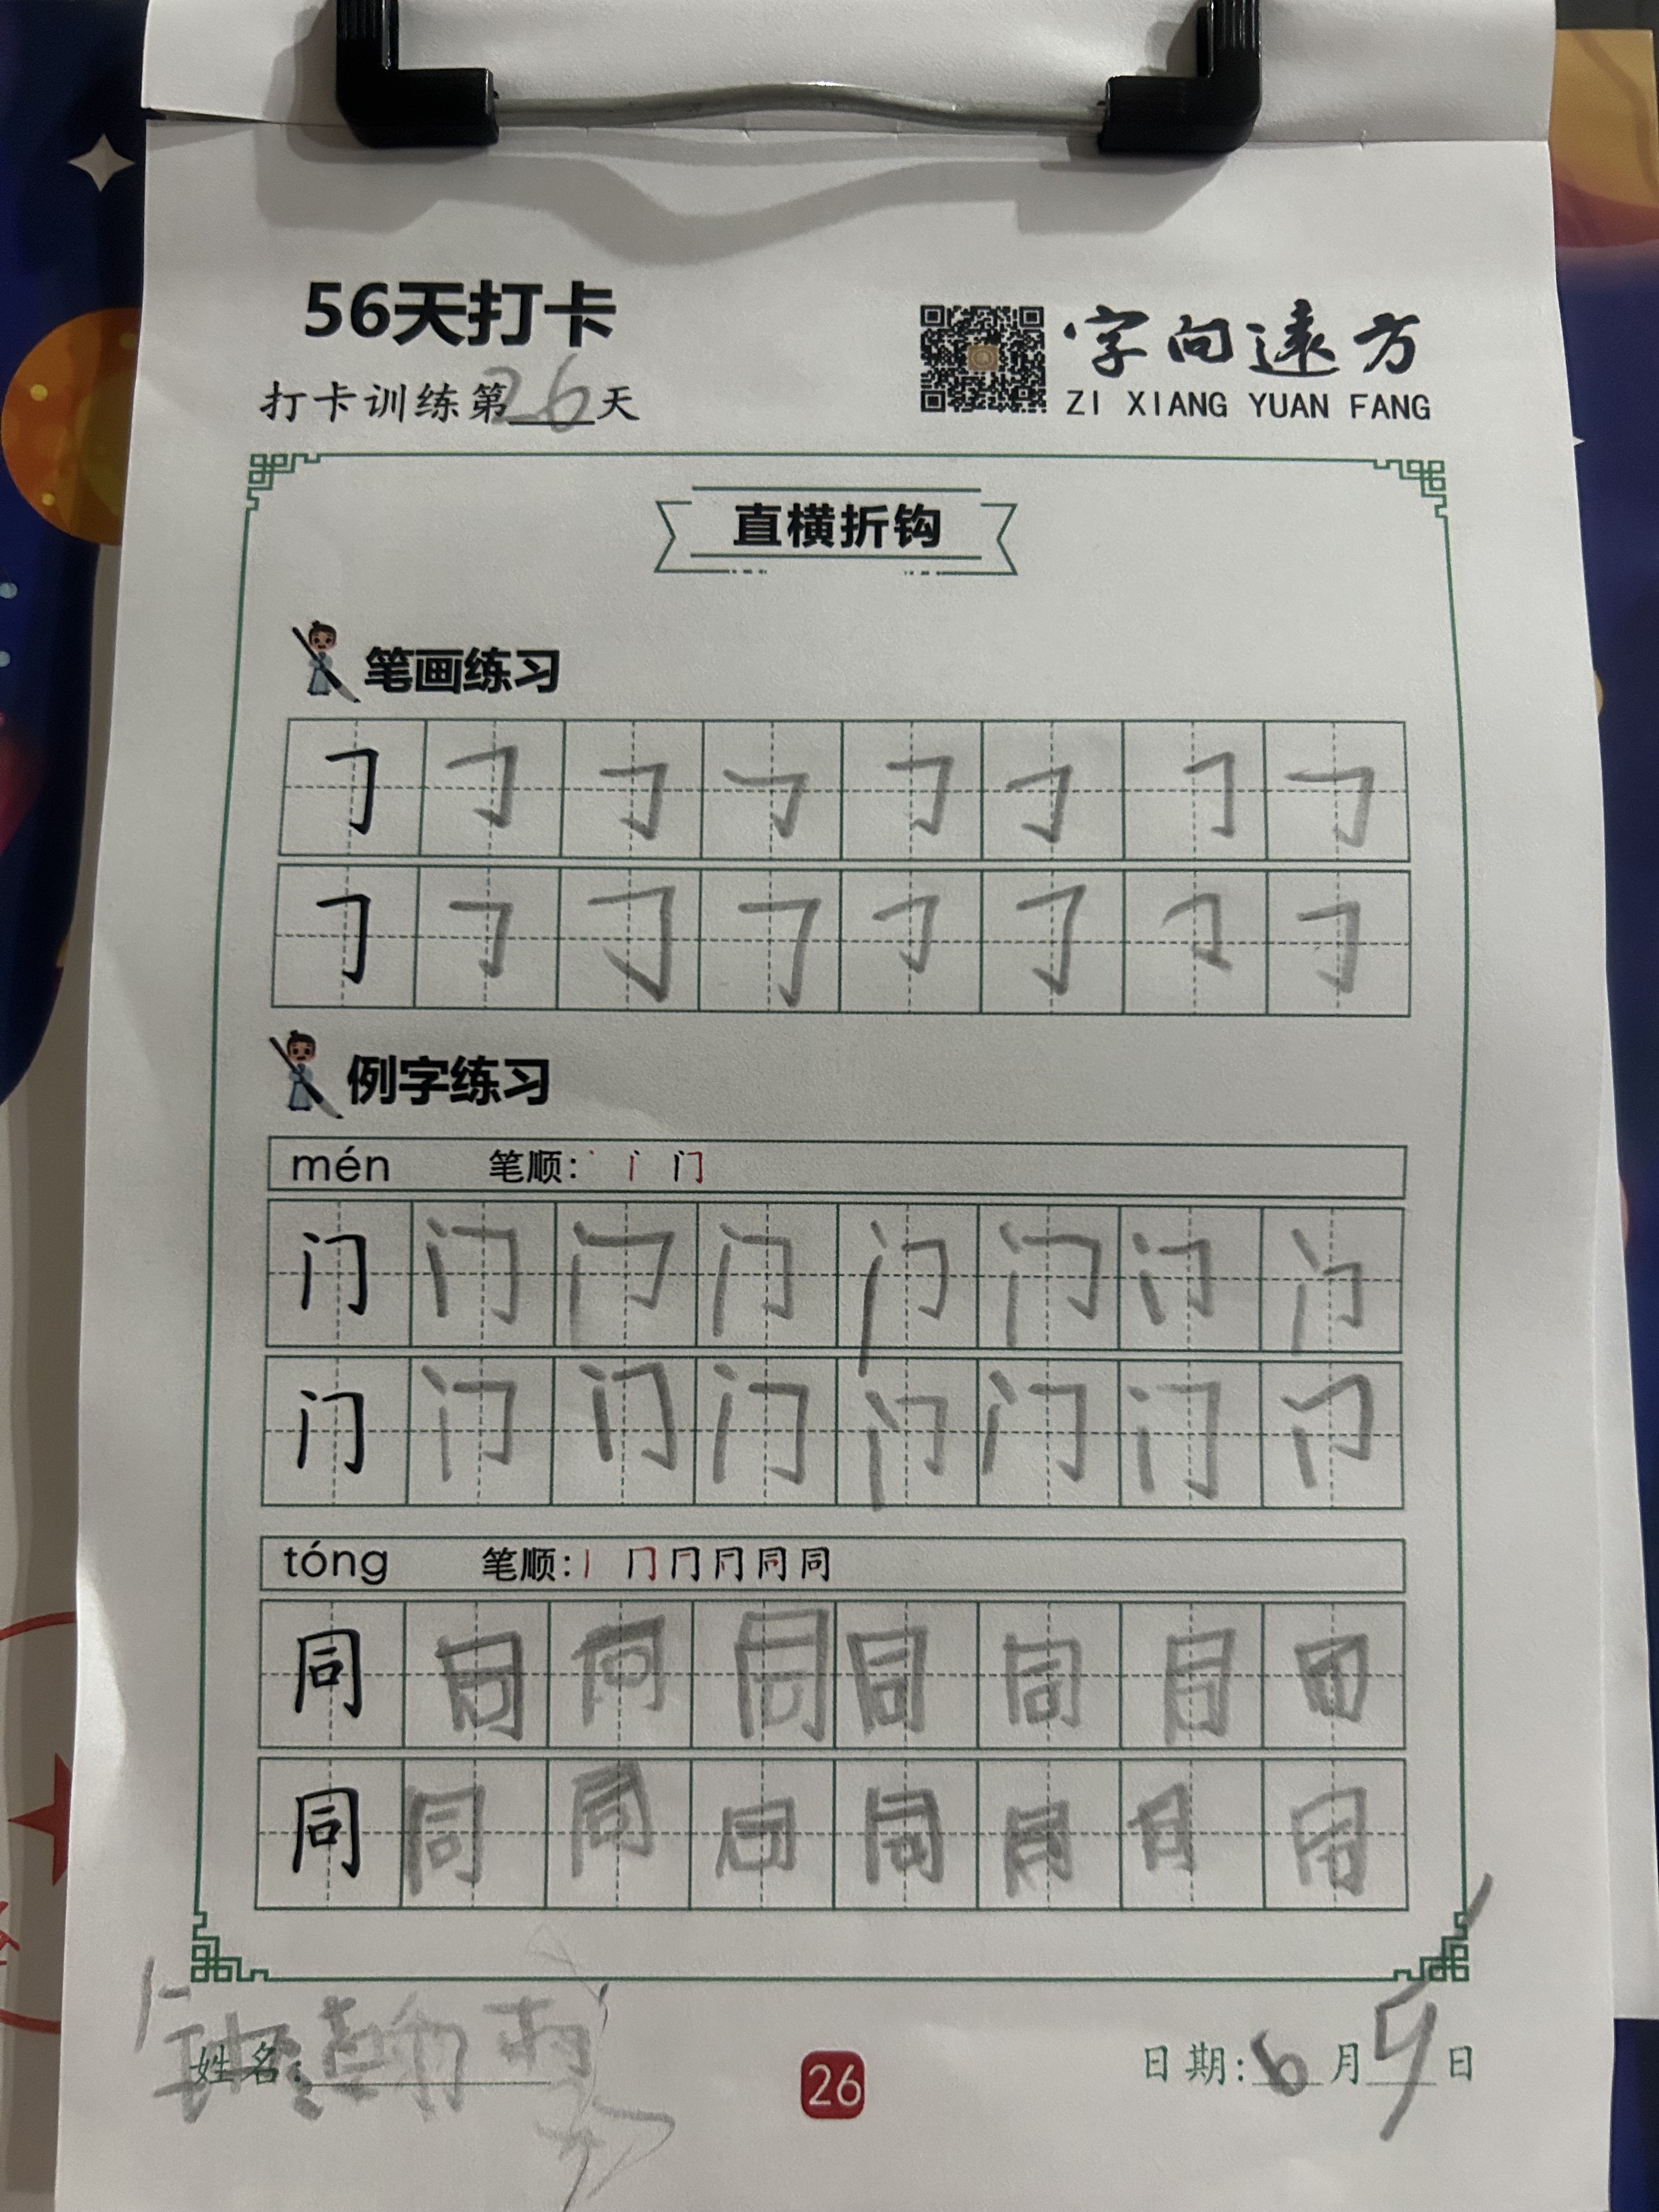 56天打卡
打卡训练第26天
字向遠方
ZI XIANG YUAN FANG
直横折钩
笔画练习
㇆ ㇆ ㇆ ㇆ ㇆ ㇆ ㇆ ㇆
㇆ ㇆ ㇆ ㇆ ㇆ ㇆ ㇆ ㇆
例字练习
mén 笔顺: 丶 丨 门
门 门 门 门 门 门 门 门
门 门 门 门 门 门 门 门
tóng 笔顺: 丨 冂 同 同
同 同 同 同 同 同 同 同
同 同 同 同 同 同 同 同
姓名:
26
日期:6月9日